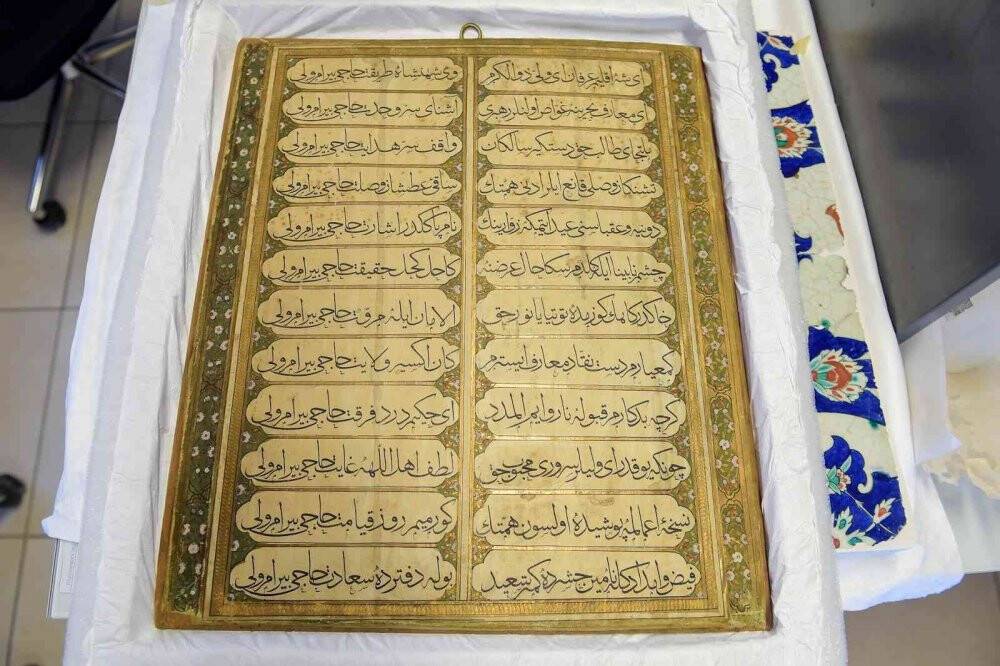 ای شه اقلیم عرفان ای ولی ذوالکرم وی شهنشاه طریقت حاجی بیرام ولی
ای معارف بحرینه غواص اولنلر رهبری آشنای سر وحدت حاجی بیرام ولی
ملتجای طالب حق دستگیر سالکان واقف سر هدایت حاجی بیرام ولی
تشنکان وصلی قانع ایلر ادنی همتك ساقی عطشان وصلت حاجی بیرام ولی
وعقباسنی عید ایتمکه زوارینك نام پاککدر اشارت حاجی بیرام ولی
چشم نابینا ایله کلدم سکا حال عرضنه کاحل کحل حقیقت حاجی بیرام ولی
خاك درکاهك کوزمده توتیا یا نور حق الامان ایله مروت حاجی بیرام ولی
کم عیارم دست نقاد معارف ایسترم کان اکسیر ولایت حاجی بیرام ولی
کرچه بدکارم قبوله ناروایم المدد ای حکیم درد فرقت حاجی بیرام ولی
چونکه یوقدر ای ولیلر سروری محجوب حق لطف اهل اللهه غایت حاجی بیرام ولی
نسخهٔ اعمالم پوشیده اولسون همتك کورمیم روز قیامت حاجی بیرام ولی
فیض حشرده کمتر سعید بوله دفترده سعادت حاجی بیرام ولی